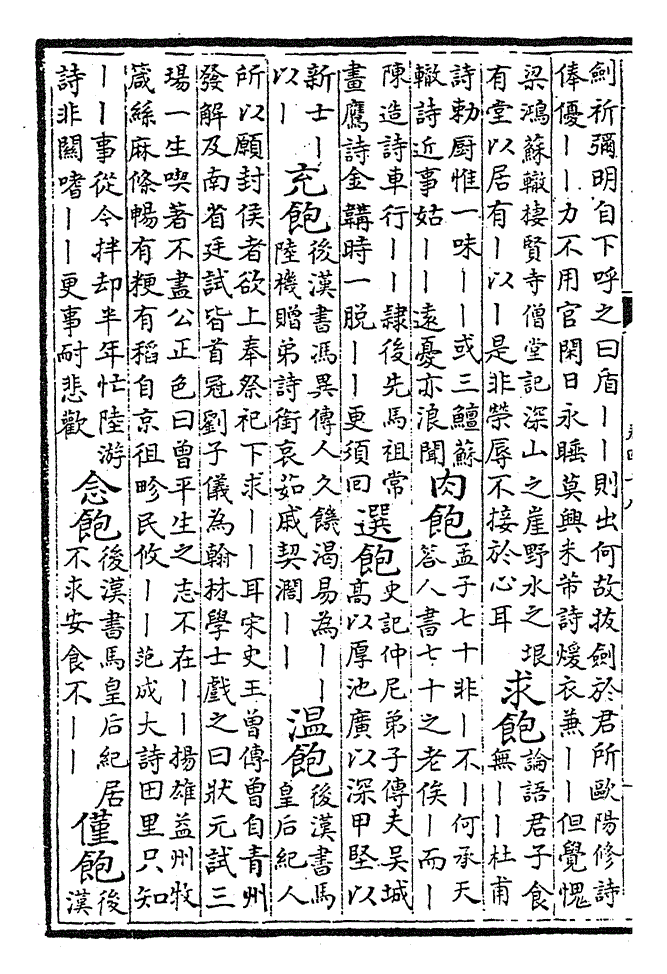 劍祈彌明自下呼之曰盾丨丨則出何故拔劍於君所歐陽修詩
俸優丨丨力不用官閑日永睡莫興米芾詩煖衣兼丨丨但覺愧
梁鴻蘇轍棲賢寺僧堂記深山之崖野水之垠
有堂以居有丨以丨是非榮辱不接於心耳
求飽
論語君子食
無丨丨杜甫
詩勅厨惟一味丨丨或三鱣蘇
轍詩近事姑丨丨遠憂亦浪聞
肉飽
孟子七十非丨不丨何承天
答人書七十之老俟丨而丨
陳造詩車行丨丨隷後先馬祖常
畫鷹詩金韝時一脫丨丨更須回
選飽
史記仲尼弟子傳夫吳城
高以厚池廣以深甲堅以
新士丨
以丨
充飽
後漢書馮異傳人久饑渴易為丨丨
陸機贈弟詩銜哀茹戚契濶丨丨
溫飽
後漢書馬
皇后紀人
所以願封侯者欲上奉祭祀下求丨丨耳宋史王曾傳曾自青州
發解及南省廷試皆首冠劉子儀為翰林學士戲之曰狀元試三
瑒一生喫著不盡公正色曰曾平生之志不在丨丨揚雄益州牧
箴絲麻條暢有粳有稻自京徂畛民攸丨丨范成大詩田里只知
丨丨事從今拌却半年忙陸游
詩非關嗜丨丨更事耐悲歡
念飽
後漢書馬皇后紀居
不求安食不丨丨
僅飽
後
漢